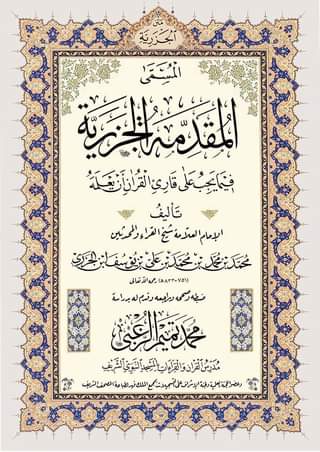 متن
الجزرية
المسمى
المقدمة الجزرية
فيما يجب على قارئ القرآن أن يعلمه
تأليف
الإمام العلامة شيخ القراء والمحدثين
محمد بن محمد بن محمد بن علي بن يوسف ابن الجزري
(٧٥١-٨٣٣هـ) رحمه الله تعالى
ضبطه وصححه وراجعه وقدم له بدراسة
محمد تميم الزعبي
مدرس القرآن والقراءات بالمسجد النبوي الشريف